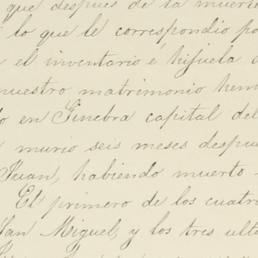 que despues de su muerte
lo que le correspondio po
el inventario é hijuela d
nuestro matrimonio hem
o en Ginebra capital del
murio seis meses despu
Juan, habiendo muerto
El primero de los cuatr
San Miguel, y los tres ulti